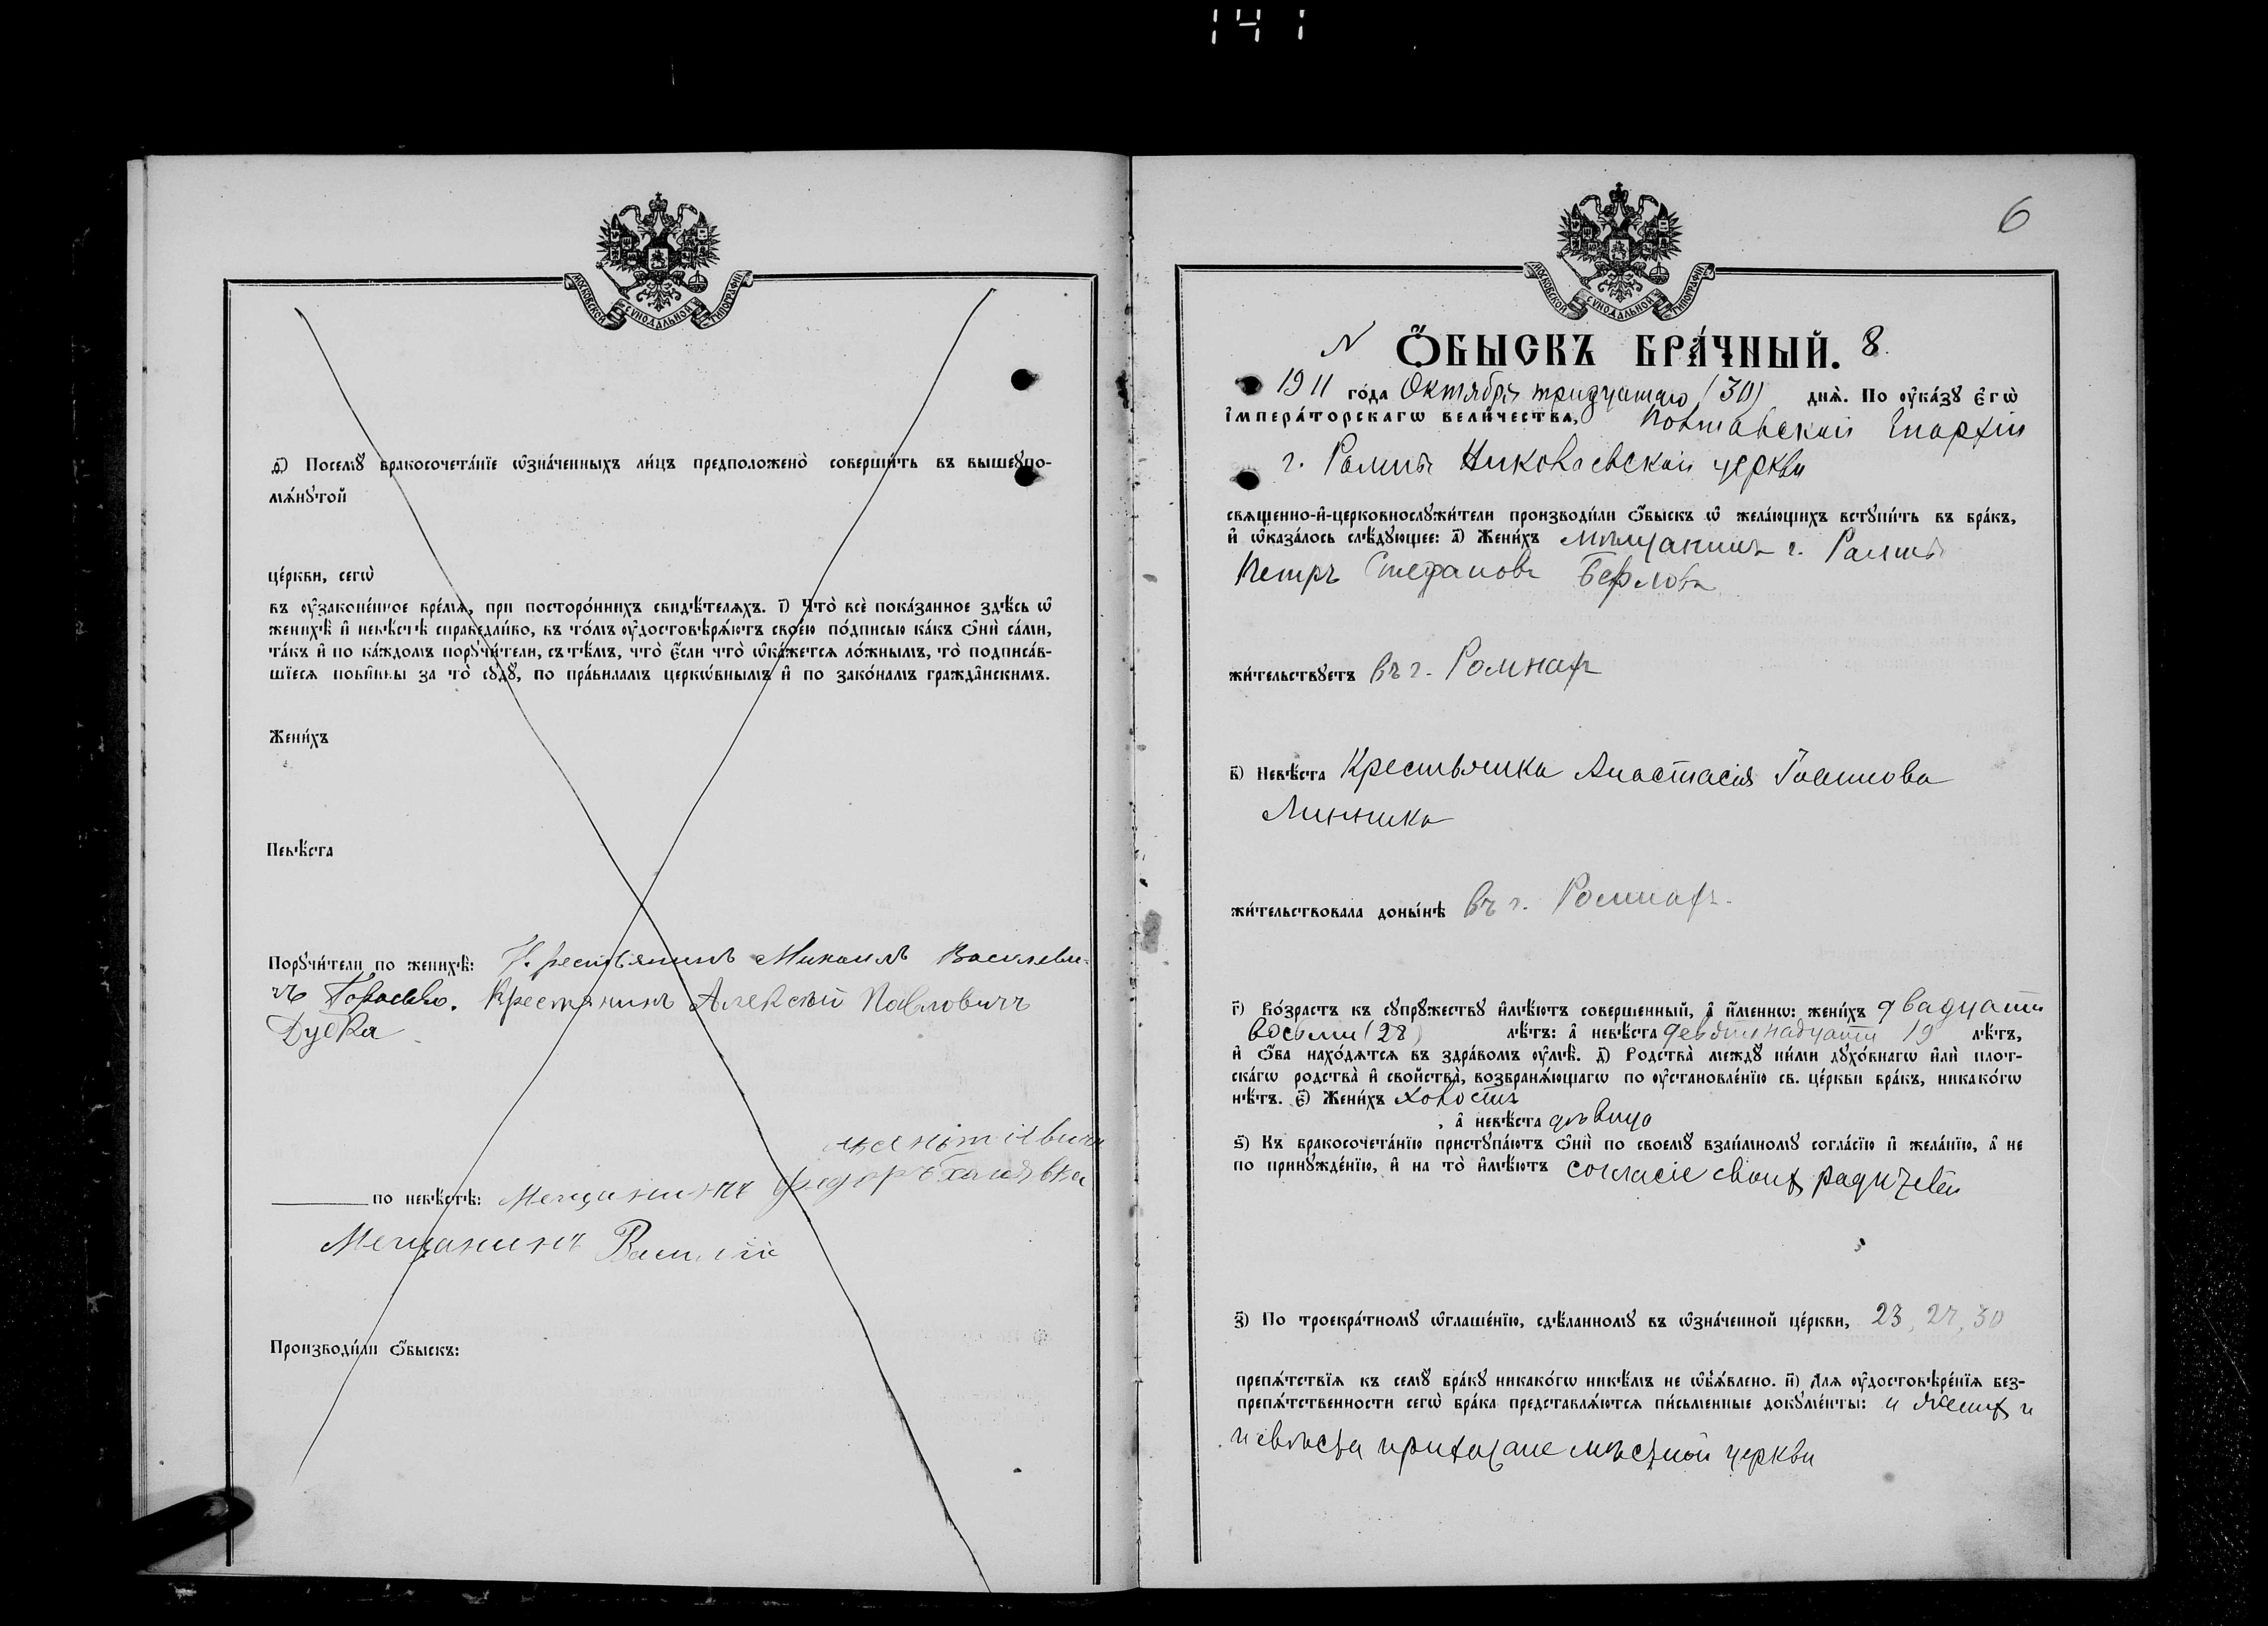 141
МОСКОВСКОЙ СѴНОДАЛЬНОЙ ТИПОГРАФІИ
ѳ҃) Посемꙋ̀ бракосочета́нїе ѡ҆зна́ченныхъ ли́цъ предположено̀ соверши́ть въ вышеꙋпо-
мѧ́нꙋтой
це́ркви, сегѡ̀
въ ᲂу҆зако́не́нное вре́мѧ, при посторо́ннихъ свидѣ́телѧхъ. і҃) Что̀ всѐ пока́занное здѣ́сь ѡ҆
женихѣ̀ и҆ невѣ́стѣ справедли́во, въ то́мъ ᲂу҆достовѣрѧ́ютъ свое́ю по́дписью ка́къ ѻ҆нѝ са́ми,
та́къ и҆ по ка́ждомъ порꙋчи́тели, съ тѣ́мъ, что̀ є҆́сли что̀ ѡ҆ка́жетсѧ ло́жнымъ, то̀ подписа́в-
шїесѧ пови́нны за то̀ сꙋдꙋ̀, по пра́виламъ церкѡ́внымъ и҆ по зако́намъ гражда̂нскимъ.
Жени́хъ
Невѣ́ста
Порꙋчи́тели по женихѣ̀: Крестьянинъ Михаилъ Василеви-
чъ Крестянинъ Алексѣй Павловичъ
Дуека
по невѣ́стѣ: Мещанинъ Федоръ Халявка
Мещанинъ Василій
Производи́ли ѻ҆́быскъ:
6
МОСКОВСКОЙ СѴНОДАЛЬНОЙ ТИПОГРАФІИ
N Ѻ҆́БЫСКЪ БРА́ЧНЫЙ. 8.
1911 го́да Октября тридцатаго (30) днѧ̀. По ᲂу҆ка́зꙋ є҆гѡ̀
і҆мпера́торскагѡ вели́чества, Полтавской Епархіи
г. Ромны Николаевской церкви
свѧще́нно-и҆-церковнослꙋжи́тели производи́ли ѻ҆́быскъ ѡ҆ жела́ющихъ встꙋпи́ть въ бра́къ,
и҆ ѡ҆каза́лось слѣ́дꙋющее: а҃) Жени́хъ мѣщанинъ г. Ромны
Петръ Стефановъ
жи́тельствꙋетъ въ г. Ромнахъ
в҃) Невѣ́ста Крестьянка Анастасія Іоаннова
Линника
жи́тельствовала доны́нѣ въ г. Ромнахъ.
г҃) Во́зрастъ къ сꙋпрꙋ́жествꙋ и҆мѣ́ютъ соверше́нный, а҆ и҆́меннѡ: жени́хъ двадцати
восьми (28) лѣ́тъ: а҆ невѣ́ста девятнадцати 19 лѣ́тъ,
и҆ ѻ҆́ба нахо́дѧтсѧ въ здра́вомъ ᲂу҆мѣ̀. д҃) Родства̀ междꙋ̀ ни́ми дꙋхо́внагѡ и҆лѝ плот-
ска́гѡ родства̀ и҆ свойства̀, возбранѧ́ющагѡ по ᲂу҆становле́нїю св. це́ркви бра́къ, никако́гѡ
нѣ́тъ. є҃) Жени́хъ холостъ
, а҆ невѣ́ста дѣвица
ѕ҃) Къ бракосочета́нїю пристꙋпа́ютъ ѻ҆нѝ по своемꙋ̀ взаи́мномꙋ согла́сїю и҆ жела́нїю, а҆ не
по принꙋжде́нїю, и҆ на то̀ и҆мѣ́ютъ согласіе своихъ родителей
з҃) По троекра́тномꙋ ѡ҆глаше́нїю, сдѣ́ланномꙋ въ ѡ҆зна́ченной це́ркви, 23, 27, 30
препѧ́тствїѧ къ семꙋ̀ бра́кꙋ никако́гѡ никѣ́мъ не ѡ҆б̾ѧ́влено. и҃) Длѧ ᲂу҆достовѣре́нїѧ без-
препѧ́тственности сегѡ̀ бра́ка представлѧ́ютсѧ пи́сьменные докꙋме́нты: и женихъ и
невѣста прихожане мѣстной церкви